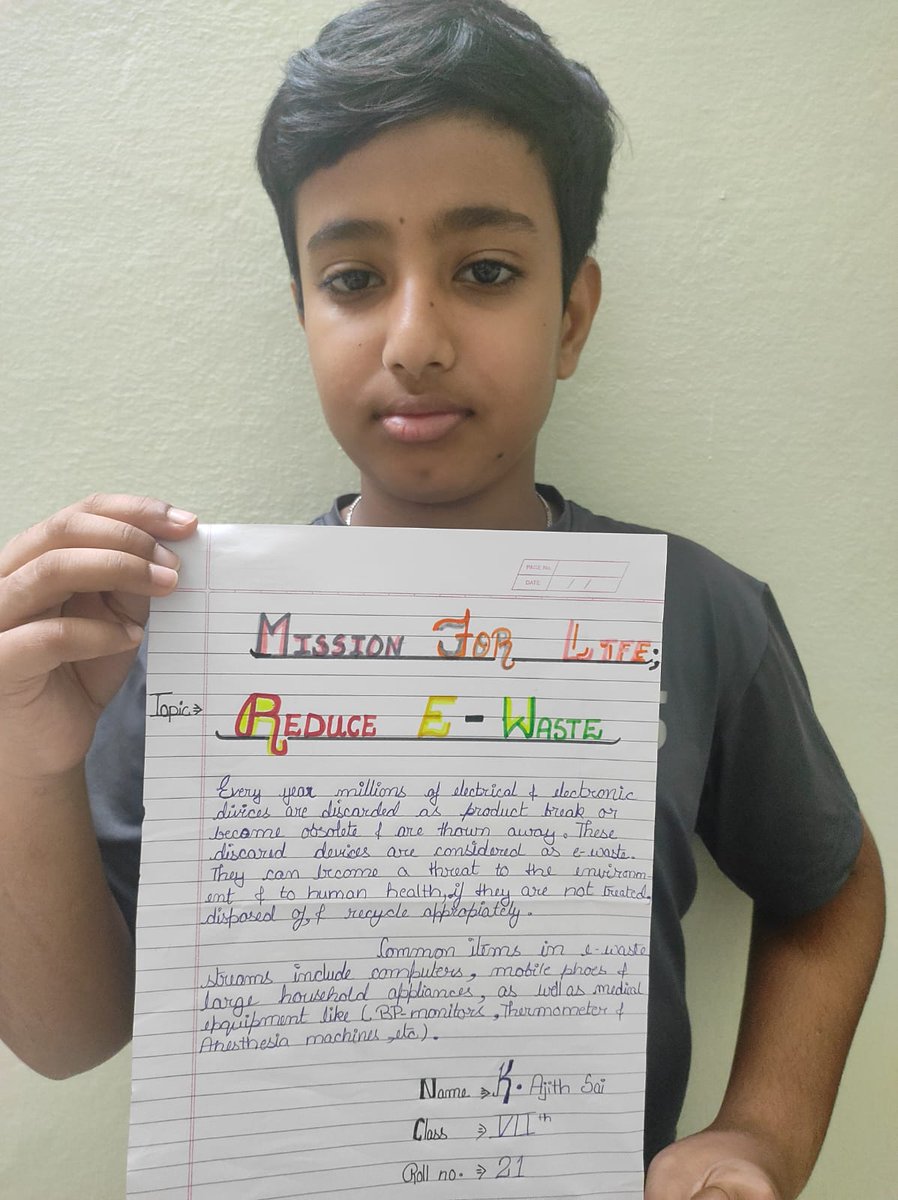 PAGE No.
DATE / /
MISSION FOR LIFE;
Topic→ REDUCE E-WASTE
Every year millions of electrical & electronic
divices are discarded as product break or
become obsolete & are thown away. These
discared devices are considered as e-waste.
They can become a threat to the environm-
ent & to human health, if they are not treated,
disposed of, & recycle appropiately.
Common items in e-waste
streams include computers, mobile phoes &
large household appliances, as well as medical
eqquipment like (BP-monitors, Thermometer &
Anesthesia machines, etc).
Name → K. Ajith Sai
Class → VIIth
Roll no. → 21